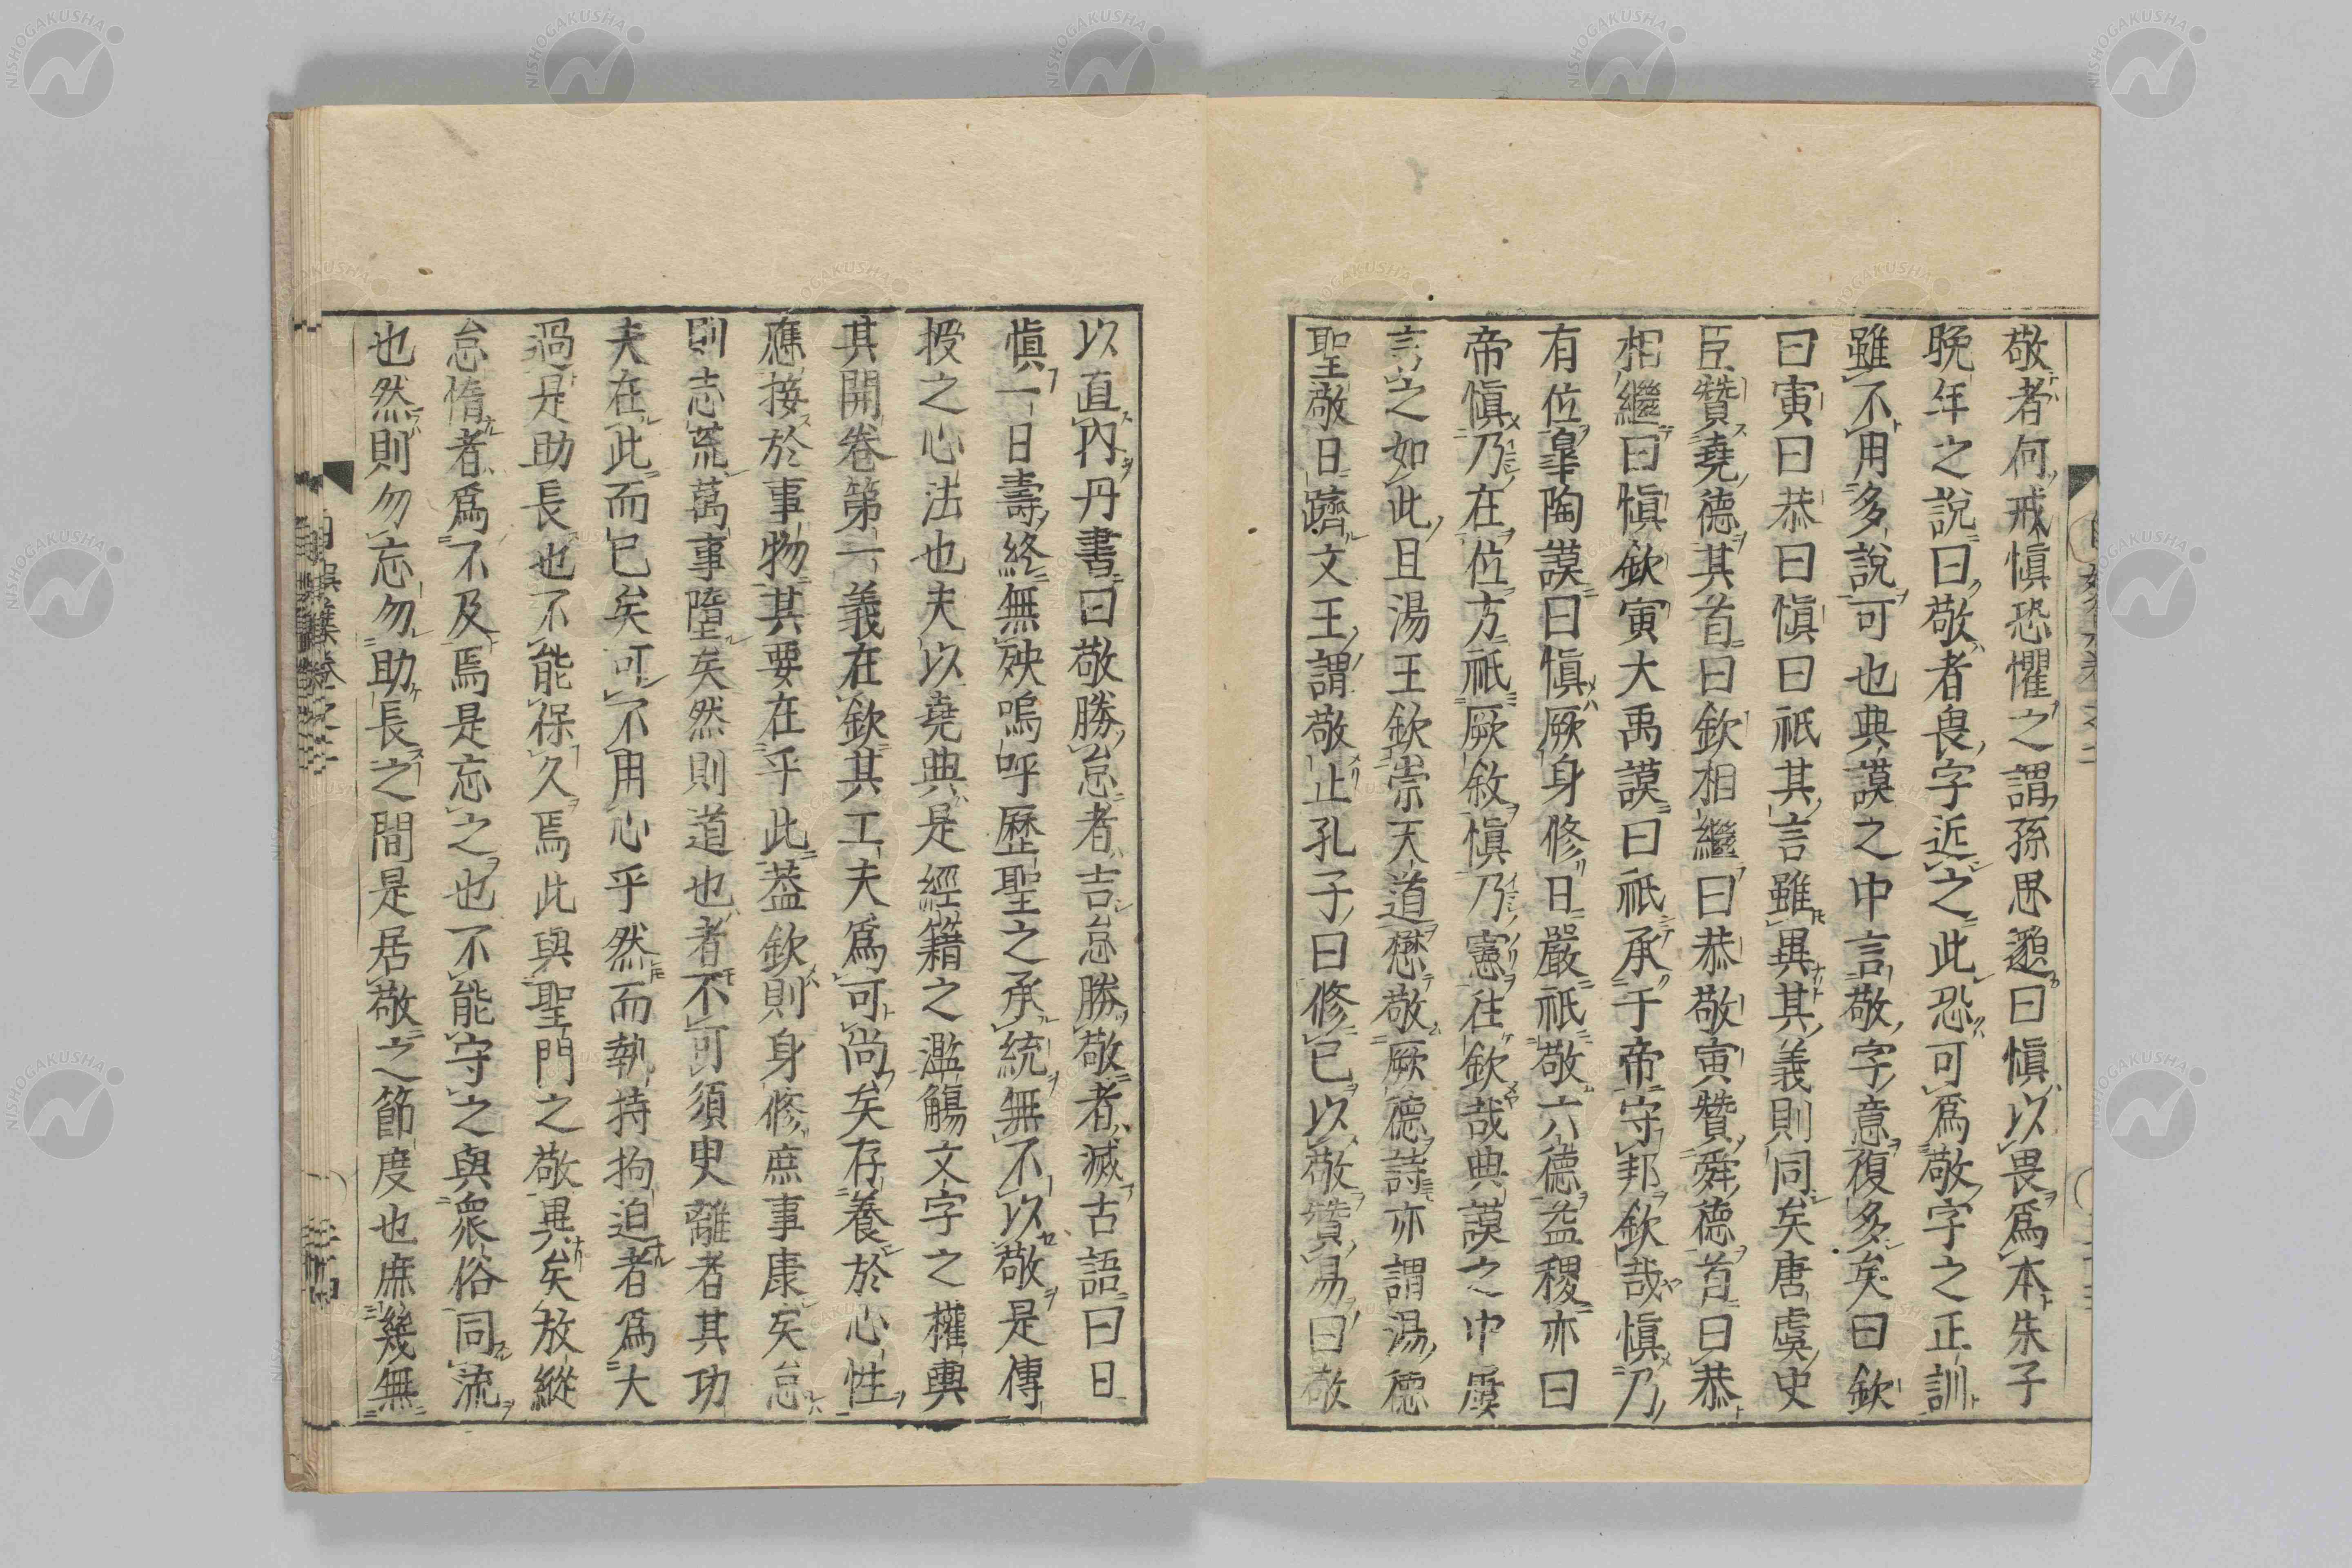 敬者何戒愼恐懼之謂孫思邈曰愼以畏爲本朱子
晩年之說曰敬者畏字近之此恐可爲敬字之正訓
雖不用多說可也典謨之中言敬字意復多矣曰欽
曰寅曰恭曰愼曰祇其言雖異其義則同矣唐虞史
臣贊堯德其首曰欽相繼曰恭敬寅贊舜德首曰恭
相繼曰愼欽寅大禹謨曰祇承于帝守邦欽哉愼乃
有位皐陶謨曰愼厥身修日嚴祇敬六德益稷亦曰
帝愼乃在位方祇厥敘愼乃憲往欽哉典謨之中屢
言之如此且湯王欽崇天道懋敬厥德詩亦謂湯德
聖敬日躋文王謂敬止孔子曰修已以敬贊易曰敬
以直內丹書曰敬勝怠者吉怠勝敬者滅古語曰日
愼一日壽終無殃嗚呼歷聖之承統無不以敬是傳
授之心法也夫以堯典是經籍之濫觴文字之權輿
其開卷第一義在欽其工夫爲可尚矣存養於心性
應接於事物其要在乎此蓋欽則身修庶事康矣怠
則志荒萬事墮矣然則道也者不可須臾離者其功
夫在此而已矣可不用心乎然而執持拘迫者爲大
過是助長也不能保久焉此與聖門之敬異矣放縱
怠惰者爲不及焉是忘之也不能守之與衆俗同流
也然則勿忘勿助長之間是居敬之節度也庶幾無
NISHOGAKUSHA